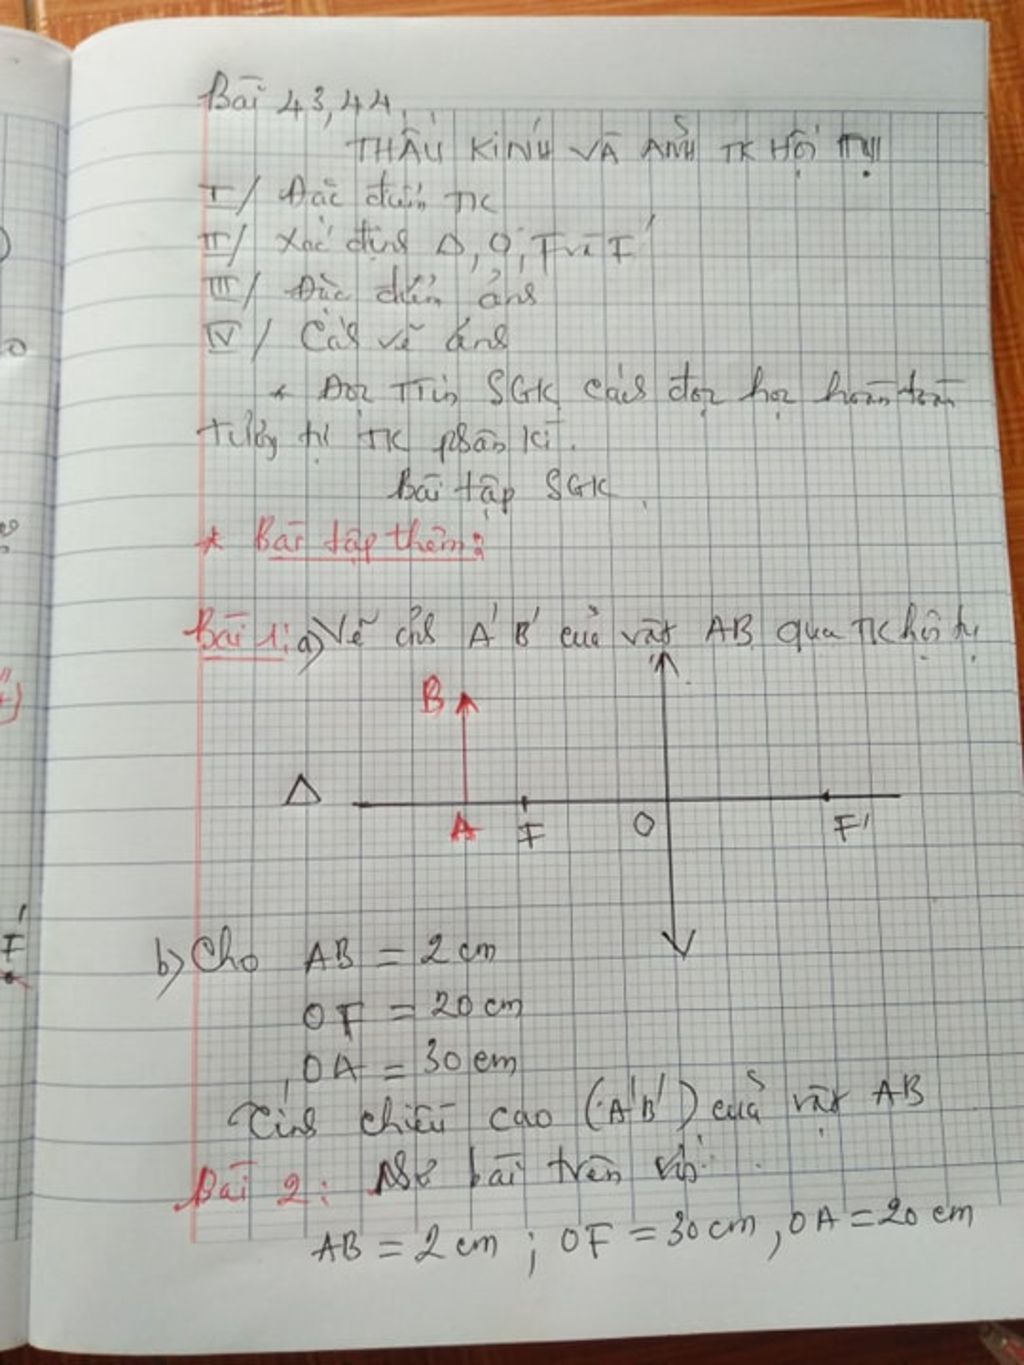 Bài 43,44.
THẤU KÍNH VÀ ẢNH TK HỘI TỤ
I/ Đặc điểm TK
II/ Xác định Δ, O, F và F'
III/ Đặc điểm ảnh
IV/ Cách vẽ ảnh
* Đọc TTin SGK cách đọc học hoàn toàn
tương tự TK phân kì.
Bài tập SGK
* Bài tập thêm:
Bài 1: a) Vẽ ảnh A'B' của vật AB qua TK hội tụ
B
Δ
A F O F'
b) Cho AB = 2 cm
OF = 20 cm
OA = 30 cm
Tính chiều cao (A'B') của vật AB
Bài 2: Như bài trên với
AB = 2 cm ; OF = 30 cm, OA = 20 cm
F'